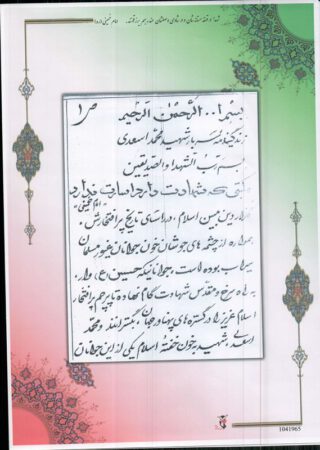 ص ۱
بسم ا... الرحمن الرحیم
زندگینامه پربار شهید محمد اسعدی
بسم رب الشهدا و الصدیقین
ملتی که شهادت دارد اسارت ندارد
امام خمینی
دین مبین اسلام، در راستای تاریخ پر افتخارش،
همواره از چشمه های جوشان خون جوانان غیور مسلمان
سیراب بوده است، جوانانیکه حسین (ع) وار،
به راه سرخ و مقدس شهادت گام نهاده تا پرچم پر افتخار
اسلام عزیز را در گستره های پهناور جهان، بگسترانند و محمد
اسعدی، شهید بخون خفته اسلام یکی از این جوانان
1041965